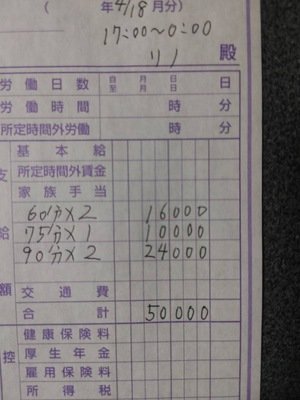 ( 年4/18月分)
17:00~0:00
リノ 殿
労働日数 自 月 日 至 月 日 日
労働時間 時 分
所定時間外労働 時 分
基本給
支 所定時間外賃金
家族手当
60分×2 16000
給 75分×1 10000
90分×2 24000
額 交通費
合計 50000
健康保険料
控 厚生年金
雇用保険料
所得税